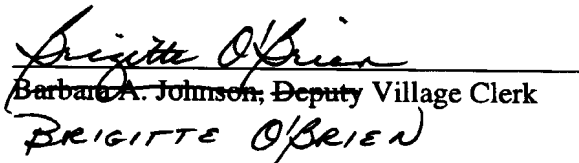 Brigitte O'Brien
Barbara A. Johnson, Deputy Village Clerk
BRIGITTE O'BRIEN